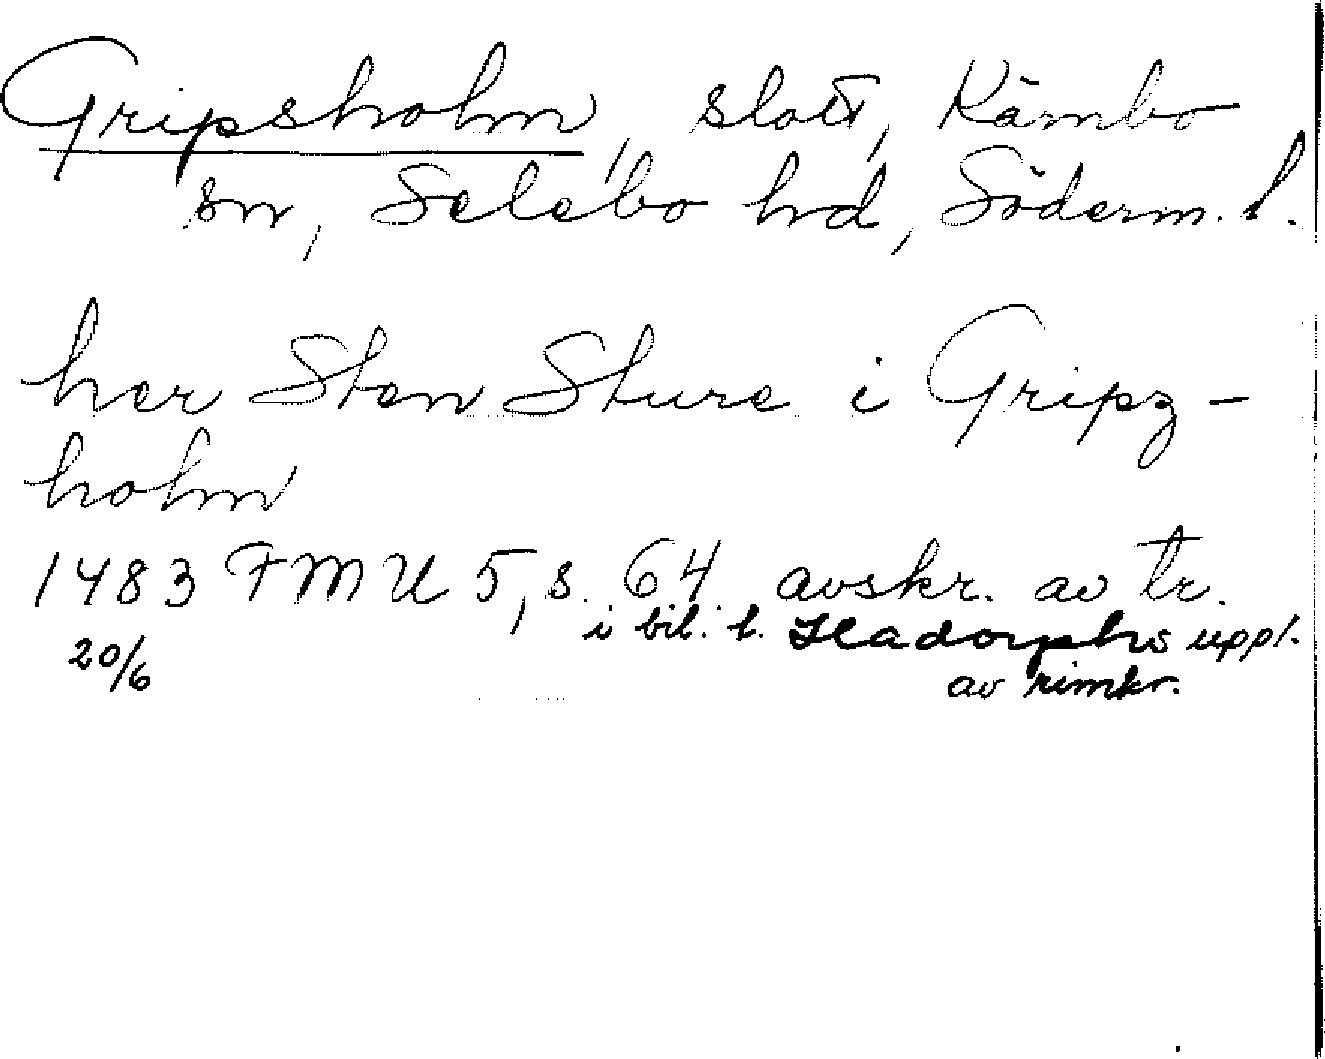 Gripsholm, slott, Kärnbo
sn, Selebo hd, Söderm. l.
her Sten Sture i Gripz-
holm
1483 FMU 5, s. 64 avskr. av tr.
20/6 i bil. t. Hadorphs uppl.
av rimkr.